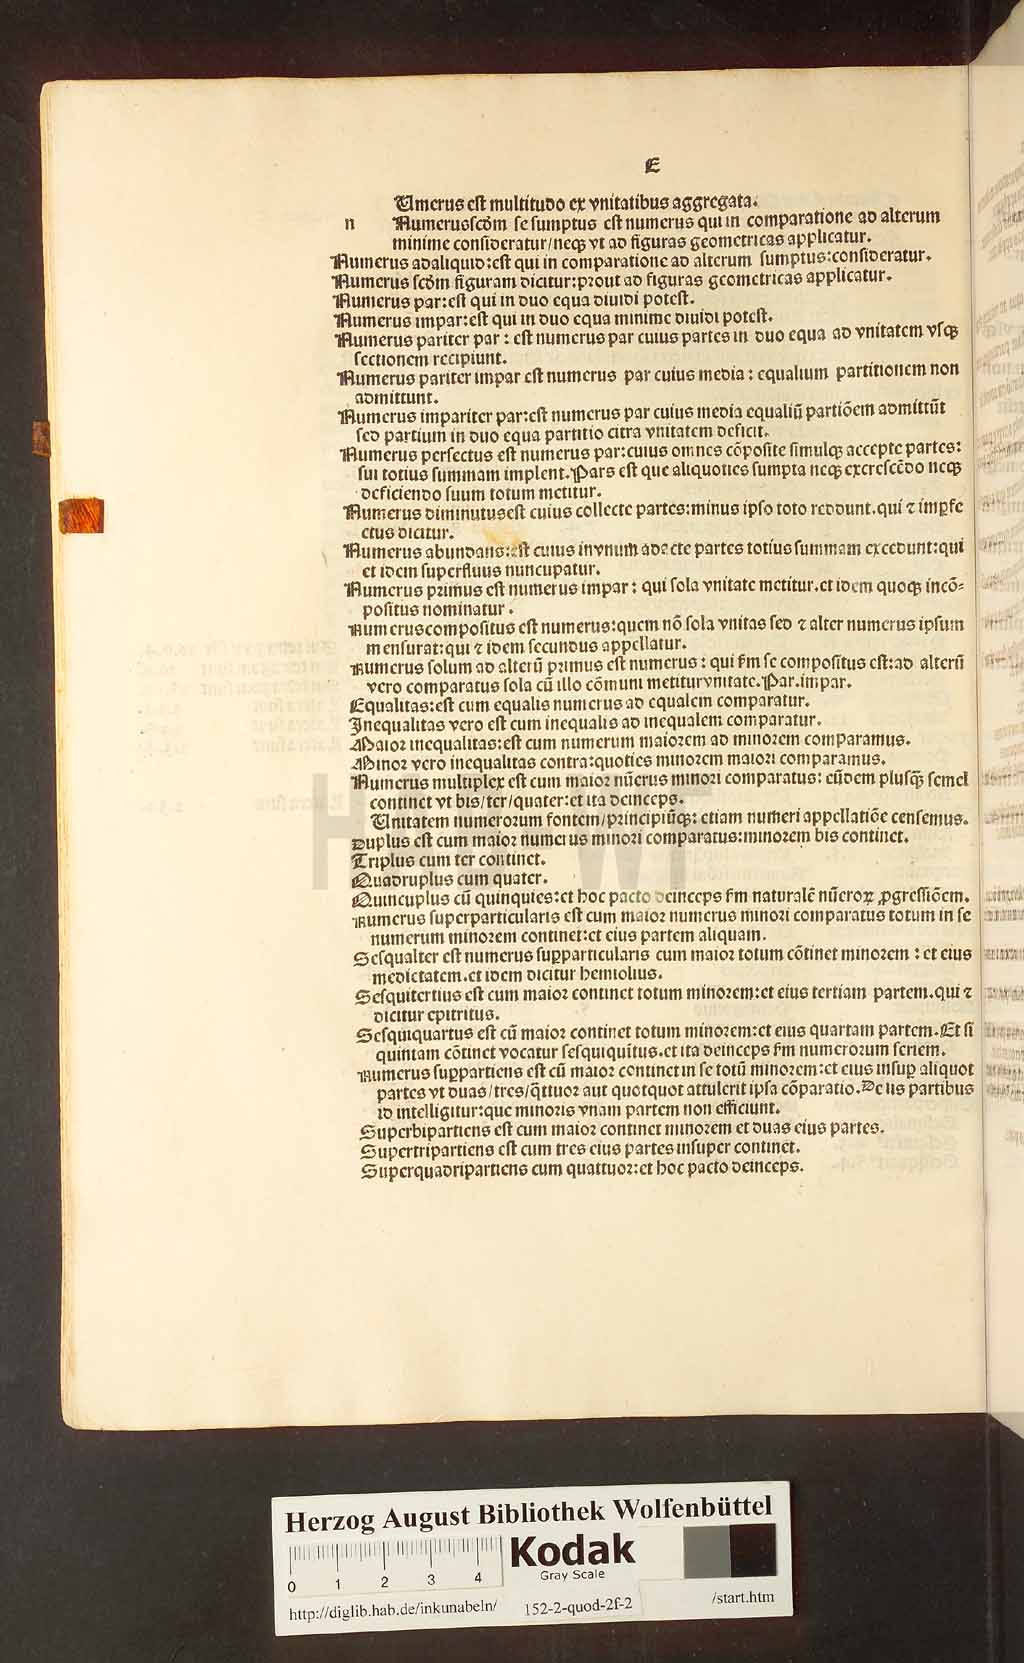 E
Umerus est multitudo ex vnitatibus aggregata.
n Numerus scḋm se sumptus est numerus qui in comparatione ad alterum
minime consideratur/neqꝫ vt ad figuras geometricas applicatur.
Numerus adaliquid:est qui in comparatione ad alterum sumptus:consideratur.
Numerus scḋm figuram dicitur:prout ad figuras geometricas applicatur.
Numerus par:est qui in duo equa diuidi potest.
Numerus impar:est qui in duo equa minime diuidi potest.
Numerus pariter par : est numerus par cuius partes in duo equa ad vnitatem vsqꝫ
sectionem recipiunt.
Numerus pariter impar est numerus par cuius media : equalium partitionem non
admittunt.
Numerus impariter par:est numerus par cuius media equaliū partiōem admittūt
sed partium in duo equa partitio citra vnitatem deficit.
Numerus perfectus est numerus par:cuius omnes cōposite simulqꝫ accepte partes:
sui totius summam implent.Pars est que aliquoties sumpta neqꝫ excrescēdo neqꝫ
deficiendo suum totum metitur.
Numerus diminutus est cuius collecte partes:minus ipso toto reddunt.qui ⁊ imꝑfe
ctus dicitur.
Numerus abundans:est cuius invnum adecte partes totius summam excedunt:qui
et idem superfluus nuncupatur.
Numerus primus est numerus impar : qui sola vnitate metitur.et idem quoqꝫ incō=
positus nominatur.
Numerus compositus est numerus:quem nō sola vnitas sed ⁊ alter numerus ipsum
mensurat:qui ⁊ idem secundus appellatur.
Numerus solum ad alterū primus est numerus : qui ẜm se compositus est:ad alterū
vero comparatus sola cū illo cōmuni metitur vnitate.Par.impar.
Equalitas:est cum equalis numerus ad equalem comparatur.
Inequalitas vero est cum inequalis ad inequalem comparatur.
Maior inequalitas:est cum numerum maiorem ad minorem comparamus.
Minor vero inequalitas contra:quoties minorem maiori comparamus.
Numerus multiplex est cum maior nūerus minori comparatus: eūdem plusqꝫ semel
continet vt bis/ter/quater:et ita deinceps.
Vnitatem numerorum fontem/principiūqꝫ: etiam numeri appellatiōe censemus.
Duplus est cum maior numerus minori comparatus:minorem bis continet.
Triplus cum ter continet.
Quadruplus cum quater.
Quincuplus cū quinquies:et hoc pacto deinceps ẜm naturalē nūeroꝝ ꝓgressiōem.
Numerus superparticularis est cum maior numerus minori comparatus totum in se
numerum minorem continet:et eius partem aliquam.
Sesqualter est numerus suꝑparticularis cum maior totum cōtinet minorem : et eius
medietatem.et idem dicitur hemiolius.
Sesquitertius est cum maior continet totum minorem:et eius tertiam partem.qui ⁊
dicitur epitritus.
Sesquiquartus est cū maior continet totum minorem:et eius quartam partem.Et si
quintam cōtinet vocatur sesquiquītus.et ita deinceps ẜm numerorum seriem.
Numerus suꝑpartiens est cū maior continet in se totū minorem:et eius insuꝑ aliquot
partes vt duas/tres/q̄ttuor aut quotquot attulerit ipsa cōparatio.De iis partibus
id intelligitur:que minoris vnam partem non efficiunt.
Superbipartiens est cum maior continet minorem et duas eius partes.
Supertripartiens est cum tres eius partes insuper continet.
Superquadripartiens cum quattuor:et hoc pacto deinceps.
HAB-WF
Herzog August Bibliothek Wolfenbüttel
Kodak
Gray Scale
0 1 2 3 4
http://diglib.hab.de/inkunabeln/ 152-2-quod-2f-2 /start.htm